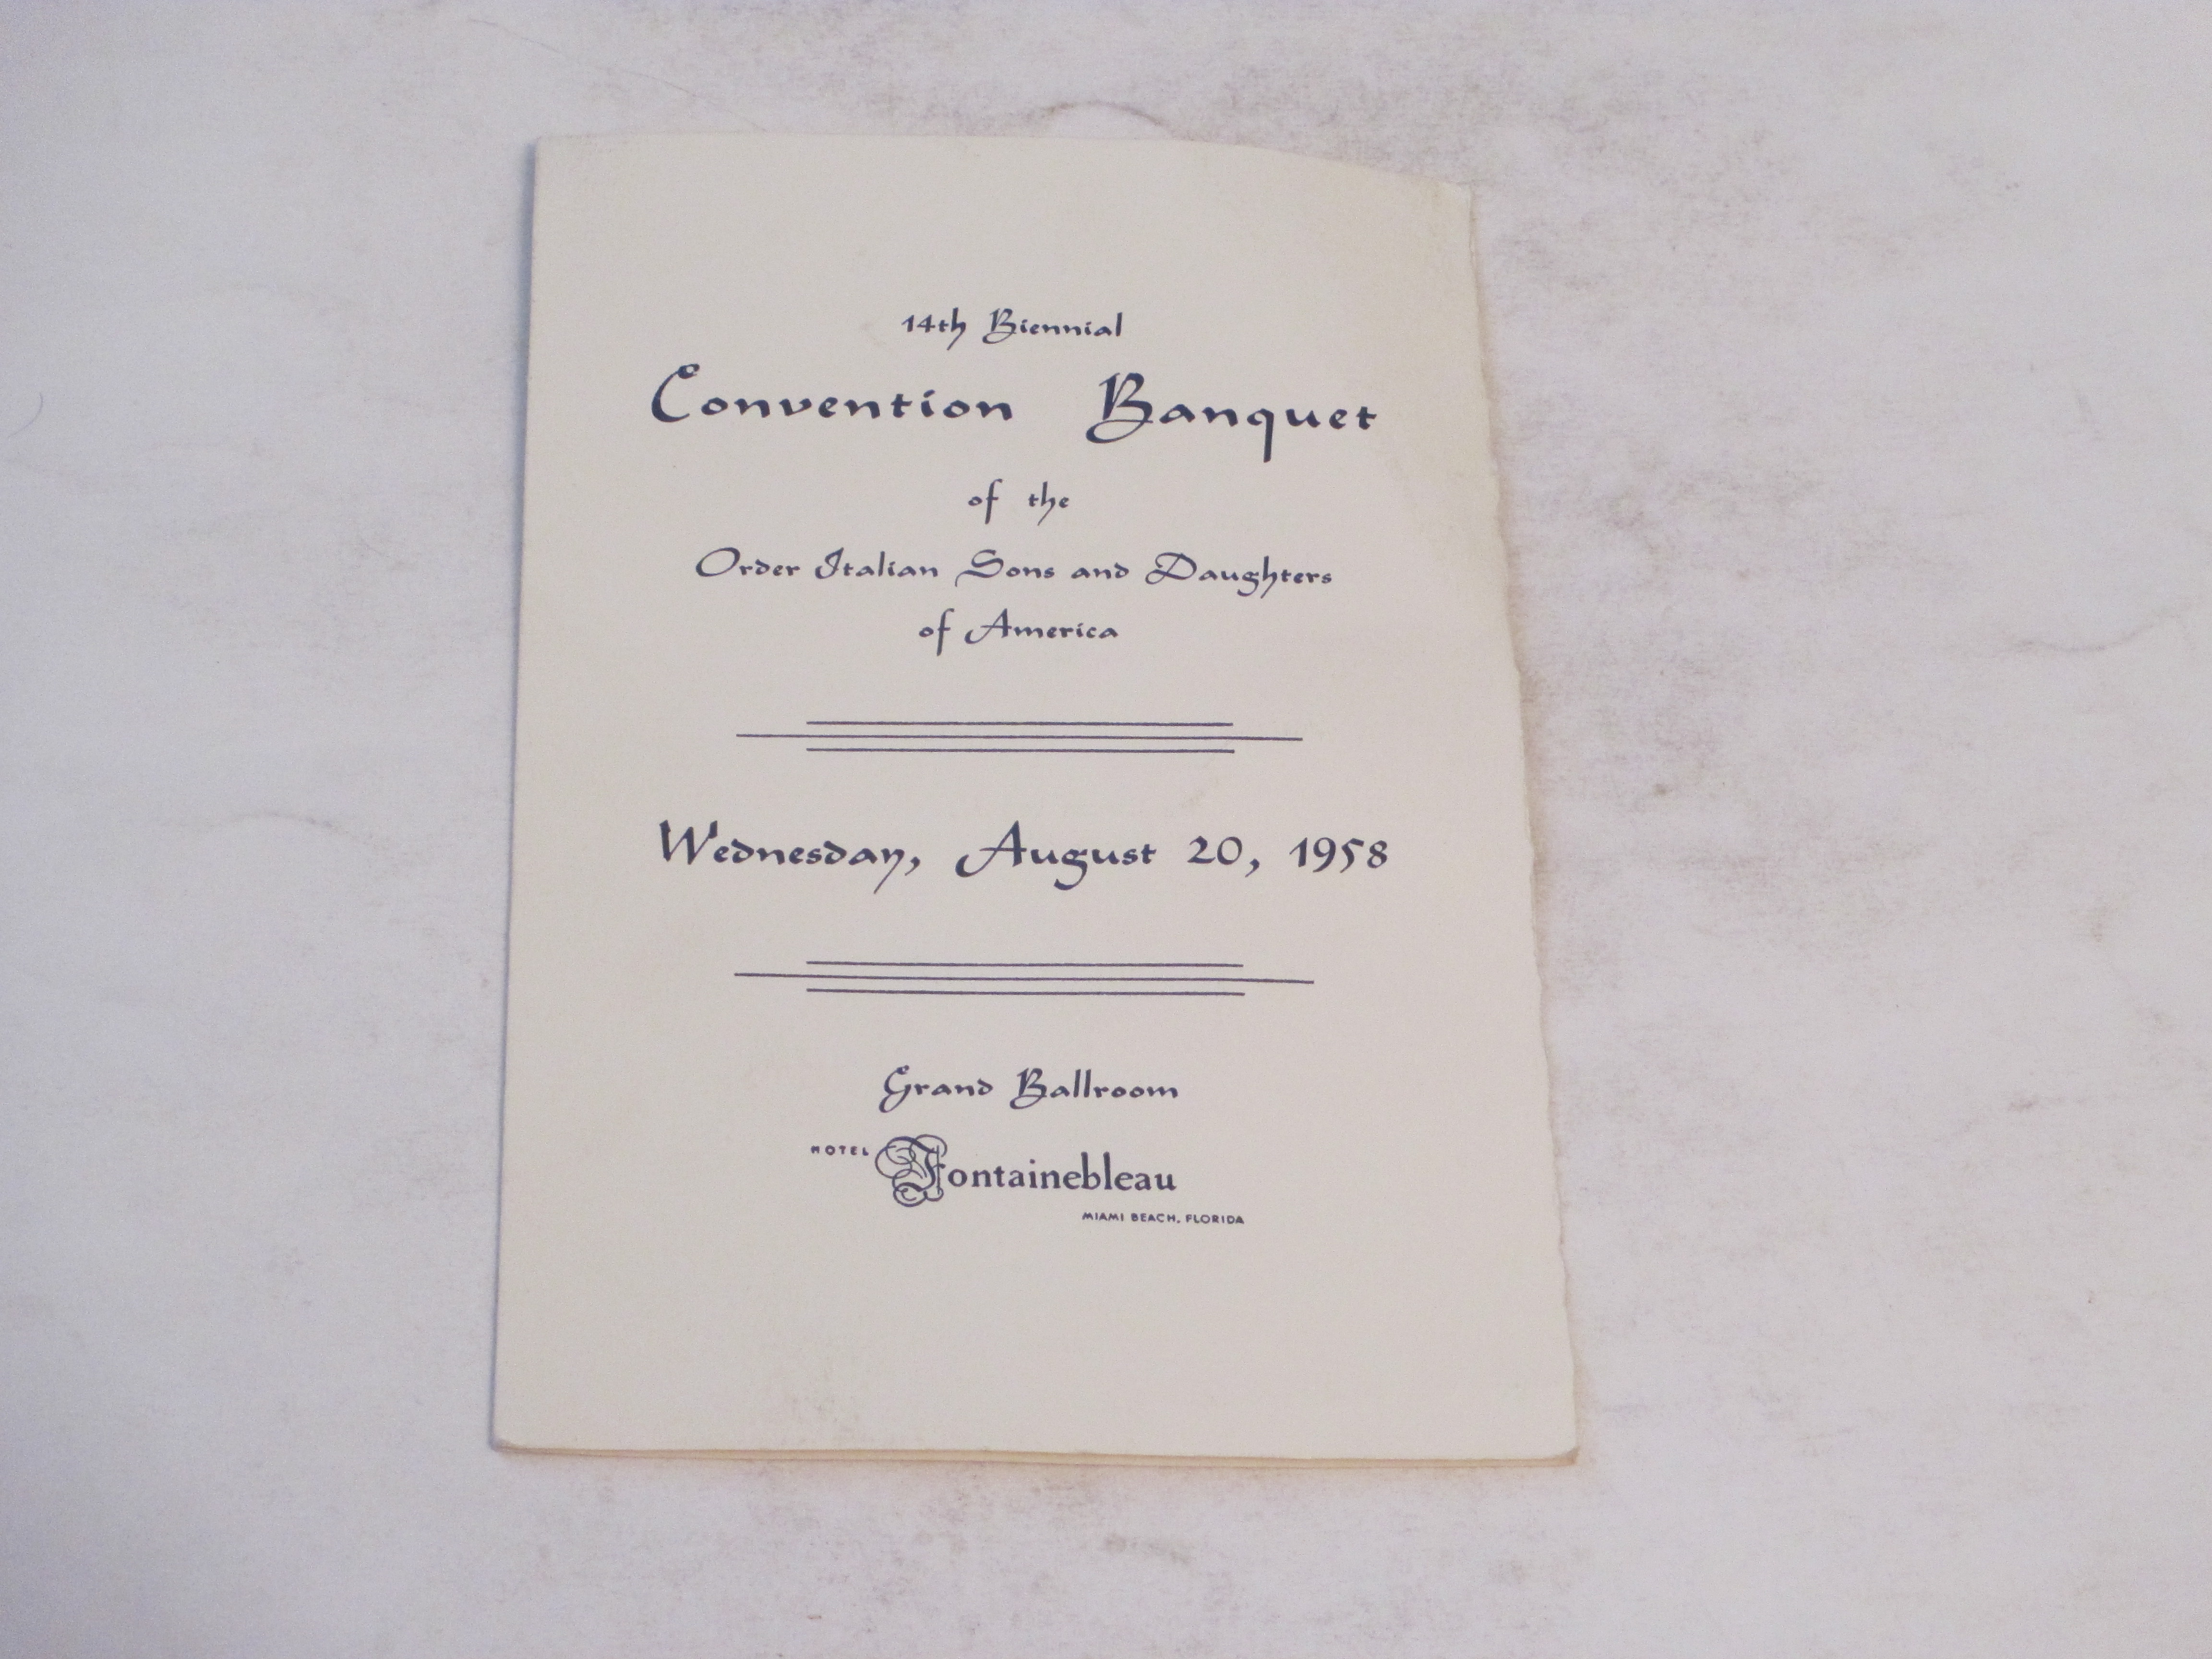 14th Biennial
Convention Banquet
of the
Order Italian Sons and Daughters
of America
Wednesday, August 20, 1958
Grand Ballroom
HOTEL Fontainebleau
MIAMI BEACH, FLORIDA